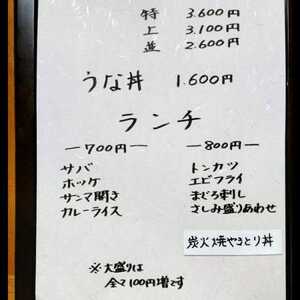 特 3.600円
上 3.100円
並 2.600円
うな丼 1.600円
ランチ
―700円―
サバ
ホッケ
サンマ開き
カレーライス
―800円―
トンカツ
エビフライ
まぐろ刺し
さしみ盛りあわせ
炭火焼やきとり丼
※大盛りは
全て100円増です